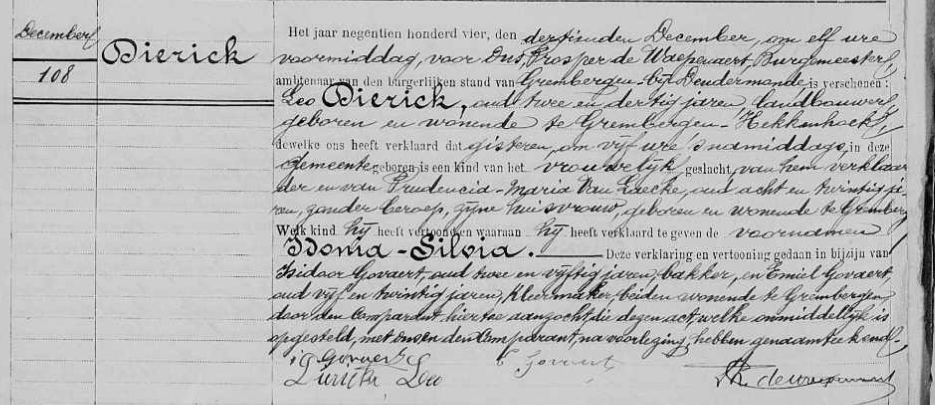 December
108
Dierick
Het jaar negentien honderd vier, den dertienden December, om elf ure
voormiddag, voor Ons, Prosper de Waepenaert, Burgemeester,
ambtenaar van den burgerlijken stand van Grembergen-bij-Dendermonde is verschenen:
Leo Dierick, oud twee en dertig jaren, landbouwer,
geboren en wonende te Grembergen-Hekkenhoek,
dewelke ons heeft verklaard dat gisteren, om vijf ure 's namiddags, in deze
gemeente geboren is een kind van het vrouwelijk geslacht, van hem verklaar
der en van Prudencia-Maria Van Laeke, oud acht en twintig ja
ren, zonder beroep, zijne huisvrouw, geboren en wonende te Grembergen
Welk kind hij heeft vertoond en waaraan hij heeft verklaard te geven de voornamen
Idonia-Silvia. Deze verklaring en vertooning gedaan in bijzijn van
Isidoor Govaert, oud twee en vijftig jaren, bakker, en Emiel Govaert,
oud vijf en twintig jaren, kleermaker, beiden wonende te Grembergen
door den Comparant hiertoe aanzocht, die dezen act, welke onmiddelijk is
opgesteld, met ons en den Comparant, na voorlezing, hebben genaamteekend.
Govaert E Govaert
Dierick Leo de Waepenaert